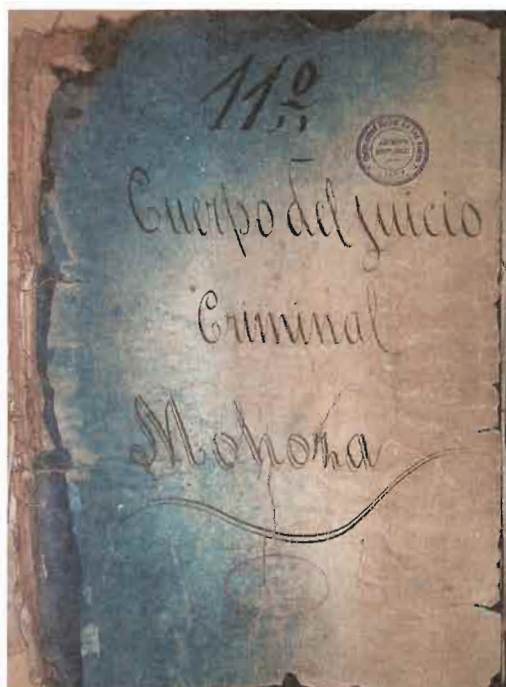 11º
Cuerpo del juicio
Criminal
Mohoza